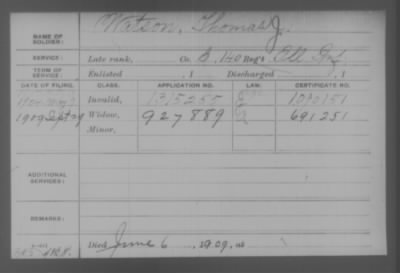 NAME OF SOLDIER: Watson, Thomas J.
SERVICE: Late rank, Co. B, 140 Reg't Ill Inf
TERM OF SERVICE: Enlisted , 1 Discharged , 1
DATE OF FILING. CLASS. APPLICATION NO. LAW. CERTIFICATE NO.
1904 May Invalid, 1315255
1909 Sept Widow, 927889 691251
Minor,
ADDITIONAL SERVICES:
REMARKS:
Died June 6 1909, at